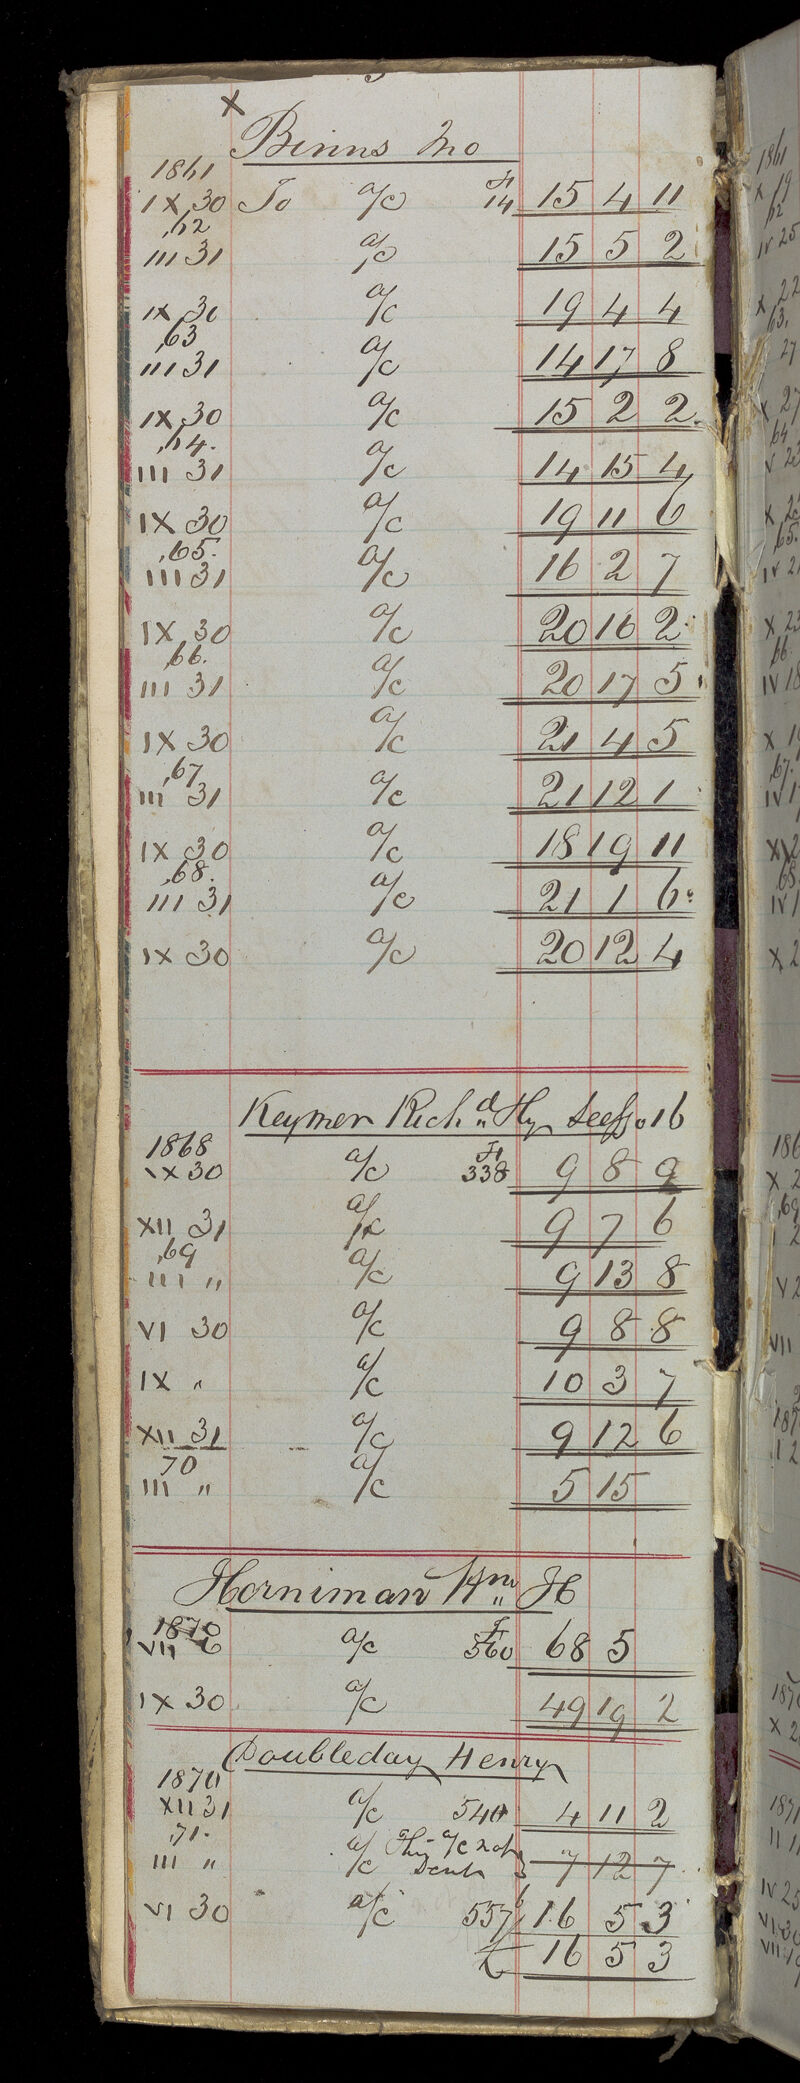 3
x
Binns Jno
1861
IX 30 To a/c Fo 14 15 4 11
,62
III 31 a/c 15 5 2
IX 30 a/c 19 4 4
,63
III 31 a/c 14 17 8
IX 30 a/c 15 2 2
,64.
III 31 a/c 14 15 4
IX 30 a/c 19 11 6
,65.
III 31 a/c 16 2 7
IX 30 a/c 20 16 2
,66.
III 31 a/c 20 17 5
IX 30 a/c 21 4 5
,67
III 31 a/c 21 12 1
IX 30 a/c 18 19 11
,68.
III 31 a/c 21 1 6
IX 30 a/c 20 12 4
Keymer Richd Hy see fo 16
1868
IX 30 a/c Fo 338 9 8 9
XII 31 a/c 9 7 6
,69
III " a/c 9 13 8
VI 30 a/c 9 8 8
IX " a/c 10 3 7
XII 31 a/c 9 12 6
70
III " a/c 5 15
Horniman Wm H
1870
VII 6 a/c F 560 68 5
IX 30 a/c 49 19 2
Doubleday Henry
1870
XII 31 a/c 540 4 11 2
,71.
III " a/c This a/c not sent 7 12 7
VI 30 a/c 557 16 5 3
£ 16 5 3
1861
x 19
,62
IV 25
x 22
63,
27
x 27
64
V 23
x 2
,65.
IV 21
x 23
66
IV 18
x 1
,67.
IV 1
XI 2
68
IV 1
x 2
186
x 2
,69
2
V 2
VII
2
187
I 2
1870
x 2
1871
II 11
IV 25
VI 30
VII 19